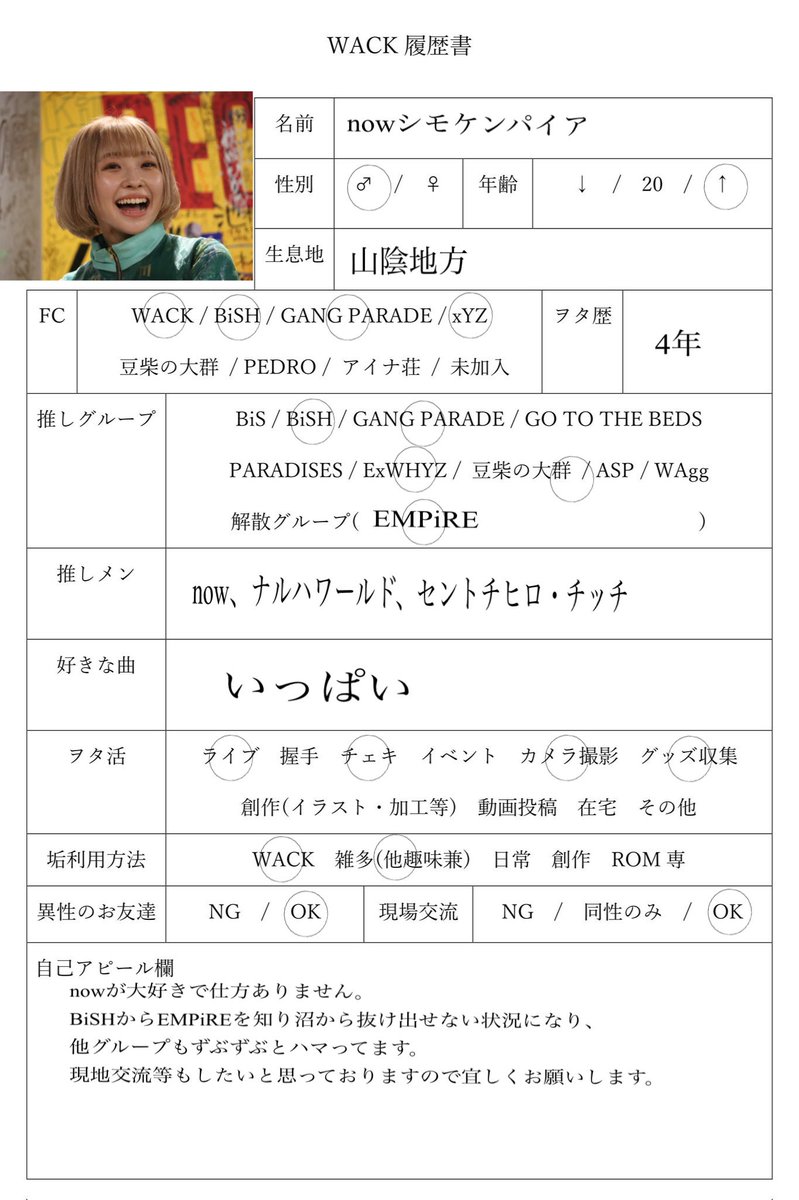 WACK 履歴書
名前
nowシモケンパイア
性別
♂ / ♀
年齢
↓ / 20 / ↑
生息地
山陰地方
FC
WACK / BiSH / GANG PARADE / xYZ
豆柴の大群 / PEDRO / アイナ荘 / 未加入
ヲタ歴
4年
推しグループ
BiS / BiSH / GANG PARADE / GO TO THE BEDS
PARADISES / ExWHYZ / 豆柴の大群 / ASP / WAgg
解散グループ( EMPiRE )
推しメン
now、ナルハワールド、セントチヒロ・チッチ
好きな曲
いっぱい
ヲタ活
ライブ 握手 チェキ イベント カメラ撮影 グッズ収集
創作(イラスト・加工等) 動画投稿 在宅 その他
垢利用方法
WACK 雑多(他趣味兼) 日常 創作 ROM 専
異性のお友達
NG / OK
現場交流
NG / 同性のみ / OK
自己アピール欄
nowが大好きで仕方ありません。
BiSHからEMPiREを知り沼から抜け出せない状況になり、
他グループもずぶずぶとハマってます。
現地交流等もしたいと思っておりますので宜しくお願いします。